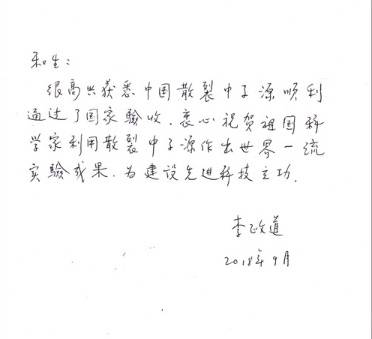 和生：
很高兴获悉中国散裂中子源顺利
通过了国家验收。衷心祝贺祖国科
学家利用散裂中子源作出世界一流
实验成果，为建设先进科技立功。
李政道
2018年9月